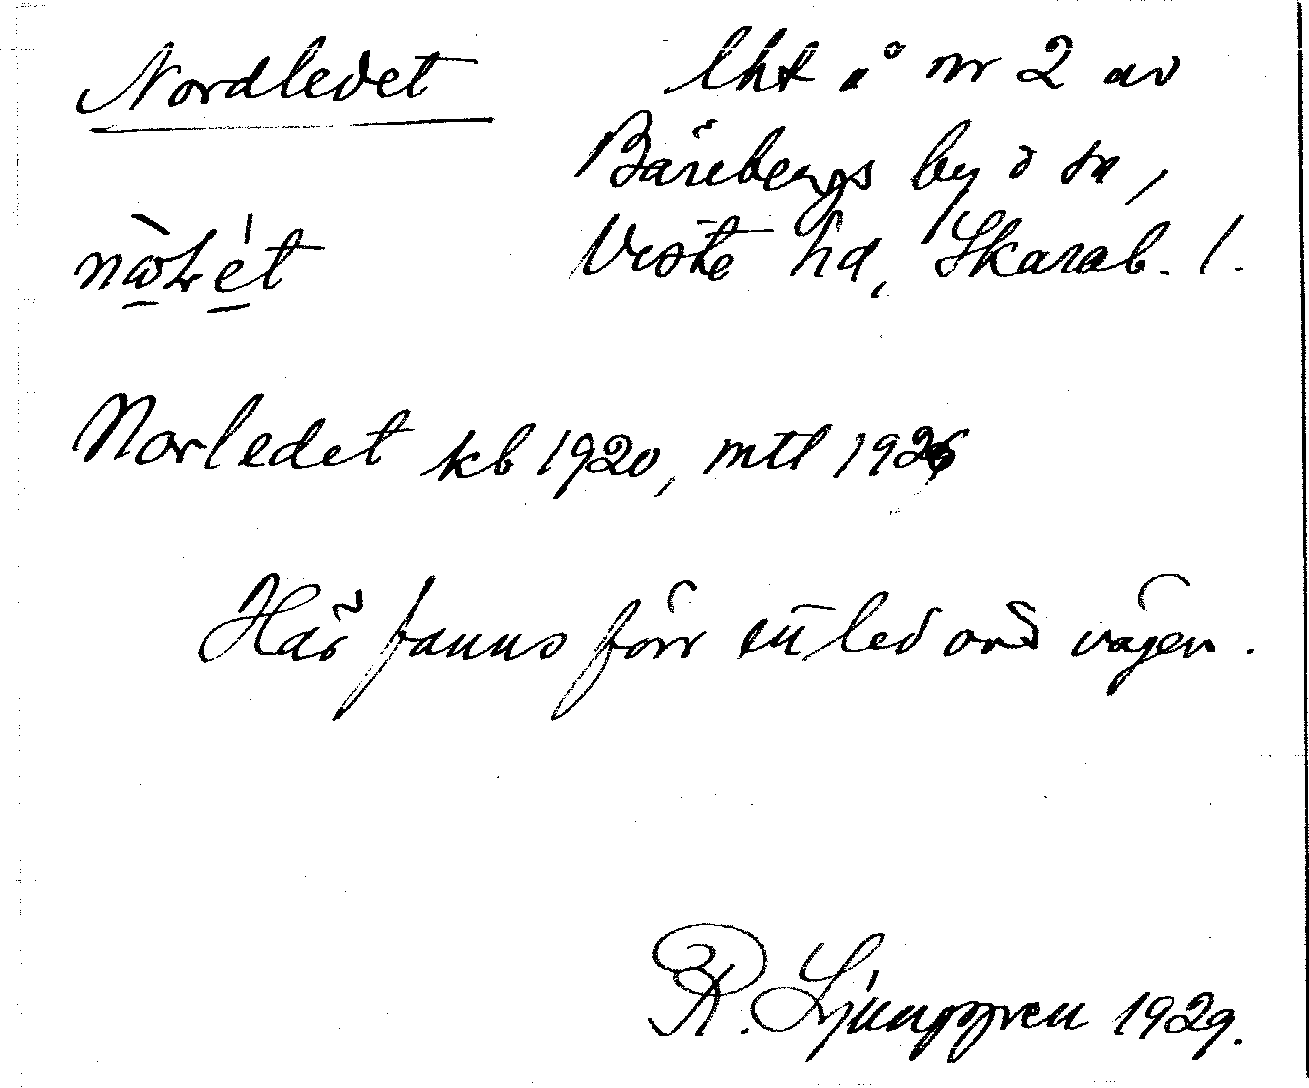 Nordledet lht å nr 2 av
Bärebergs by o sn,
Viste hd, Skarab. l.
Norledet kb 1920, mtl 1926
Här fanns förr ett led över vägen.
R. Ljunggren 1929.